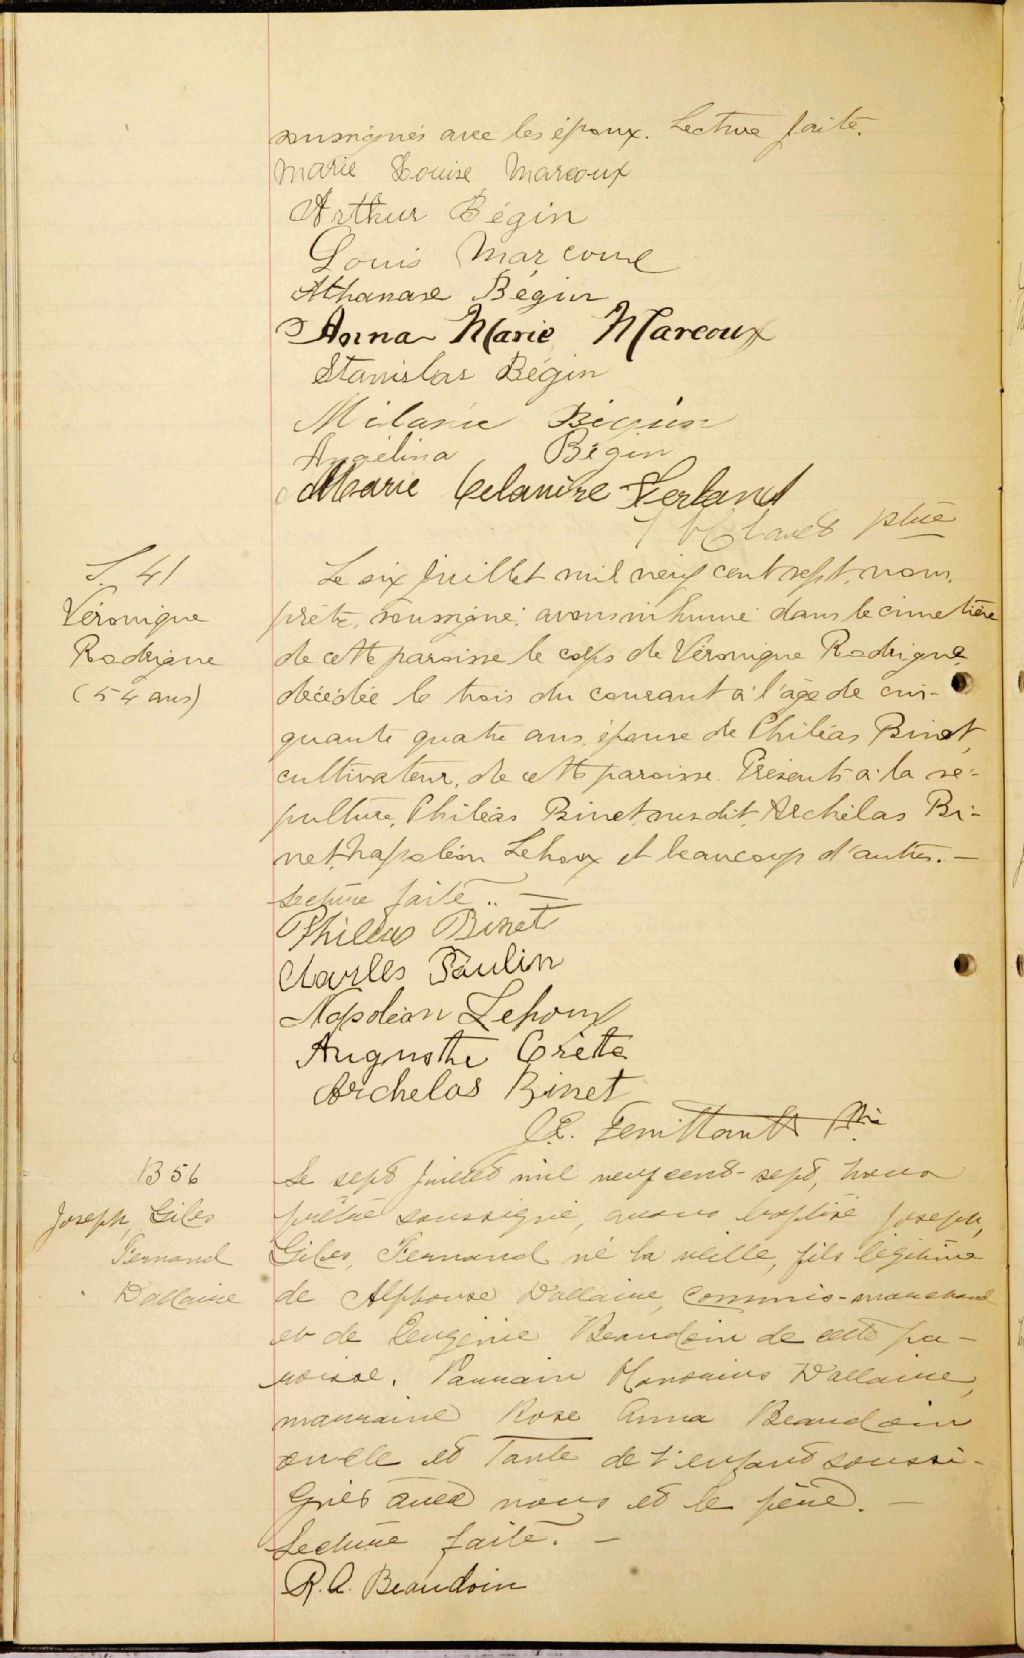 soussignés avec les époux. Lecture faite.
Marie Louise Marcoux
Arthur Bégin
Louis Marcoux
Athanase Bégin
Anna Marie Marcoux
Stanislas Bégin
Mélanie Bégin
Angélina Bégin
Marie Célanire Ferland
ptre
S. 41
Véronique
Rodrigue
(54 ans)
Le six Juillet mil neuf cent sept, nous,
prêtre, soussigné, avons inhumé dans le cimetière
de cette paroisse le corps de Véronique Rodrigue
décédée le trois du courant à l'âge de cin-
quante quatre ans, épouse de Philéas Binet,
cultivateur, de cette paroisse. Présents à la sé-
pulture, Philéas Binet susdit, Archélas Bi-
net, Napoléon Lehoux et beaucoup d'autres. —
Lecture faite.. —
Philéas Binet
Charles Poulin
Napoléon Lehoux
Auguste Crête
Archelas Binet
J.E. Ptre
B 56
Joseph, Giles
Fernand
Dallaire
Le sept Juillet mil neuf cent-sept, nous
prêtre soussigné, avons baptisé Joseph,
Giles, Fernand né la veille, fils légitime
de Alphonse Dallaire, commis-marchand
et de Eugénie Beaudoin de cette pa-
roisse. Parrain Honorius Dallaire,
marraine Rose Anna Beaudoin
oncle et Tante de l'enfant soussi-
gnés avec nous et le père. —
Lecture faite. —
R. A. Beaudoin